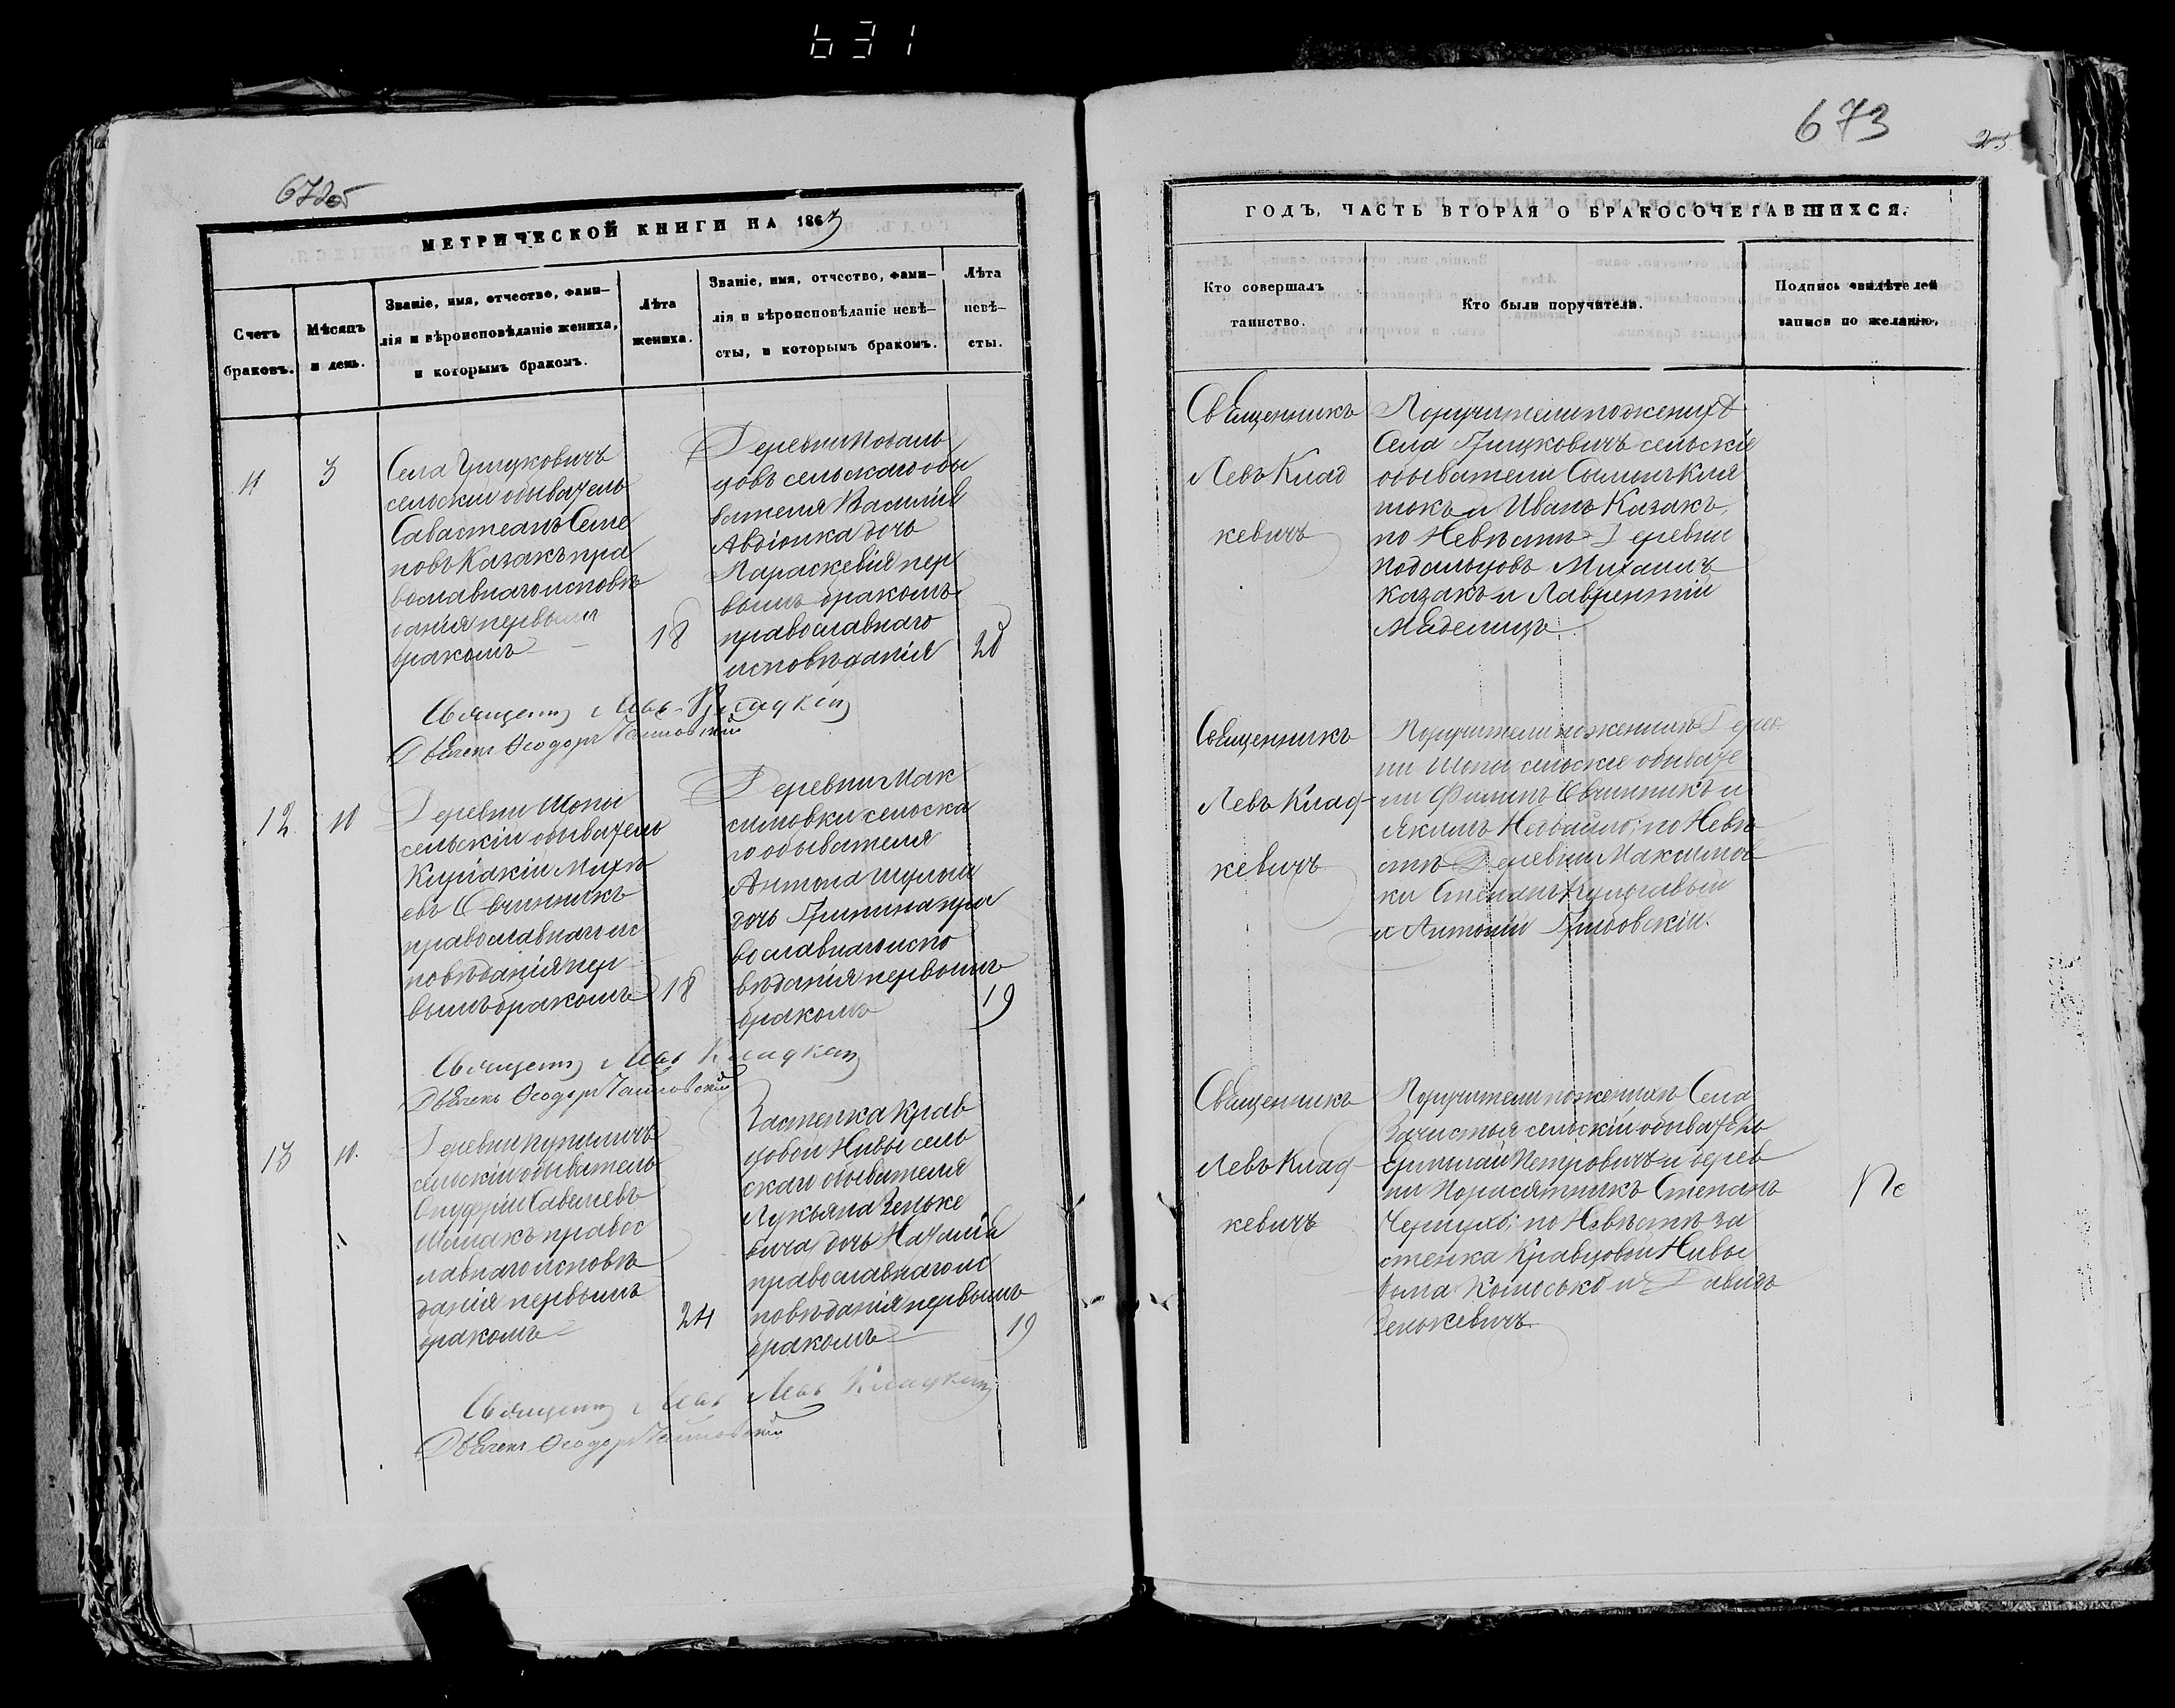 631
672об
МЕТРИЧЕСКОЙ КНИГИ НА 1863
Счетъ браковъ.
Мѣсяцъ и день.
Званіе, имя, отчество, фами-
лія и вѣроисповѣданіе жениха,
и которымъ бракомъ.
Лѣта жениха.
Званіе, имя, отчество, фами-
лія и вѣроисповѣданіе невѣ-
сты, и которымъ бракомъ.
Лѣта невѣ-
сты.
11
3
Села Грицковичъ
сельскій обыватель
Савастеанъ Семе
новъ Казакъ пра
вославнаго исповѣ
данія первымъ
бракомъ
18
Деревни Подаль
цовъ сельскаго обы
вателя Василія
Авдіюка дочь
Параскевія пер
вымъ бракомъ
православнаго
исповѣданія
20
Священ Левъ Кладкев
Дьячекъ Ѳеодоръ
12
10
Деревни Шопы
сельскій обыватель
Киріакій Михѣ
евъ Овчинникъ
православнаго ис
повѣданія пер
вымъ бракомъ
18
Деревни Мак
симовки сельска
го обывателя
Антона
дочь Грипина пра
вославнаго испо
вѣданія первымъ
бракомъ
19
Священ Левъ Кладкев
Дьячекъ Ѳеодоръ
13
10.
Деревни
сельскій обыватель
Онуфрій Савельевъ
Шмакъ правос
лавнаго исповѣ
данія первымъ
бракомъ
24
Застенка Крав
цовой Нивы сель
скаго обывателя
Лукьяна Зеньке
вича дочь Наталія
православнаго ис
повѣданія первымъ
бракомъ
19
Священ Левъ Левъ Кладкев
Дьячекъ Ѳеодоръ
673
ГОДЪ, ЧАСТЬ ВТОРАЯ О БРАКОСОЧЕТАВШИХСЯ.
Кто совершалъ
таинство.
Кто были поручители.
Подпись свидѣтелей
записи по желанію.
Священникъ
Левъ Клад
кевичъ
Поручители по женихѣ
Села Грицковичъ сельскіе
обыватели Сымонъ
и Иванъ Казакъ,
по Невѣстѣ Деревни
Подальцовъ Михаилъ
Казакъ и Лаврентій
Священникъ
Левъ Клад-
кевичъ
Поручители по женихѣ Дерев
ни Шопы сельскіе обывате
ли Филипъ Овчинникъ и
Якимъ по Невѣ
стѣ Деревни Максимов
ки Степанъ Кульгавый
и Антоній
Священникъ
Левъ Клад-
кевичъ
Поручители по женихѣ Села
Зачистья сельскій обыватель
Ермолай Петровичъ и дерев
ни Степанъ
по Невѣстѣ за
стенка Кравцовой Нивы
и Давидъ
Зенькевичъ.